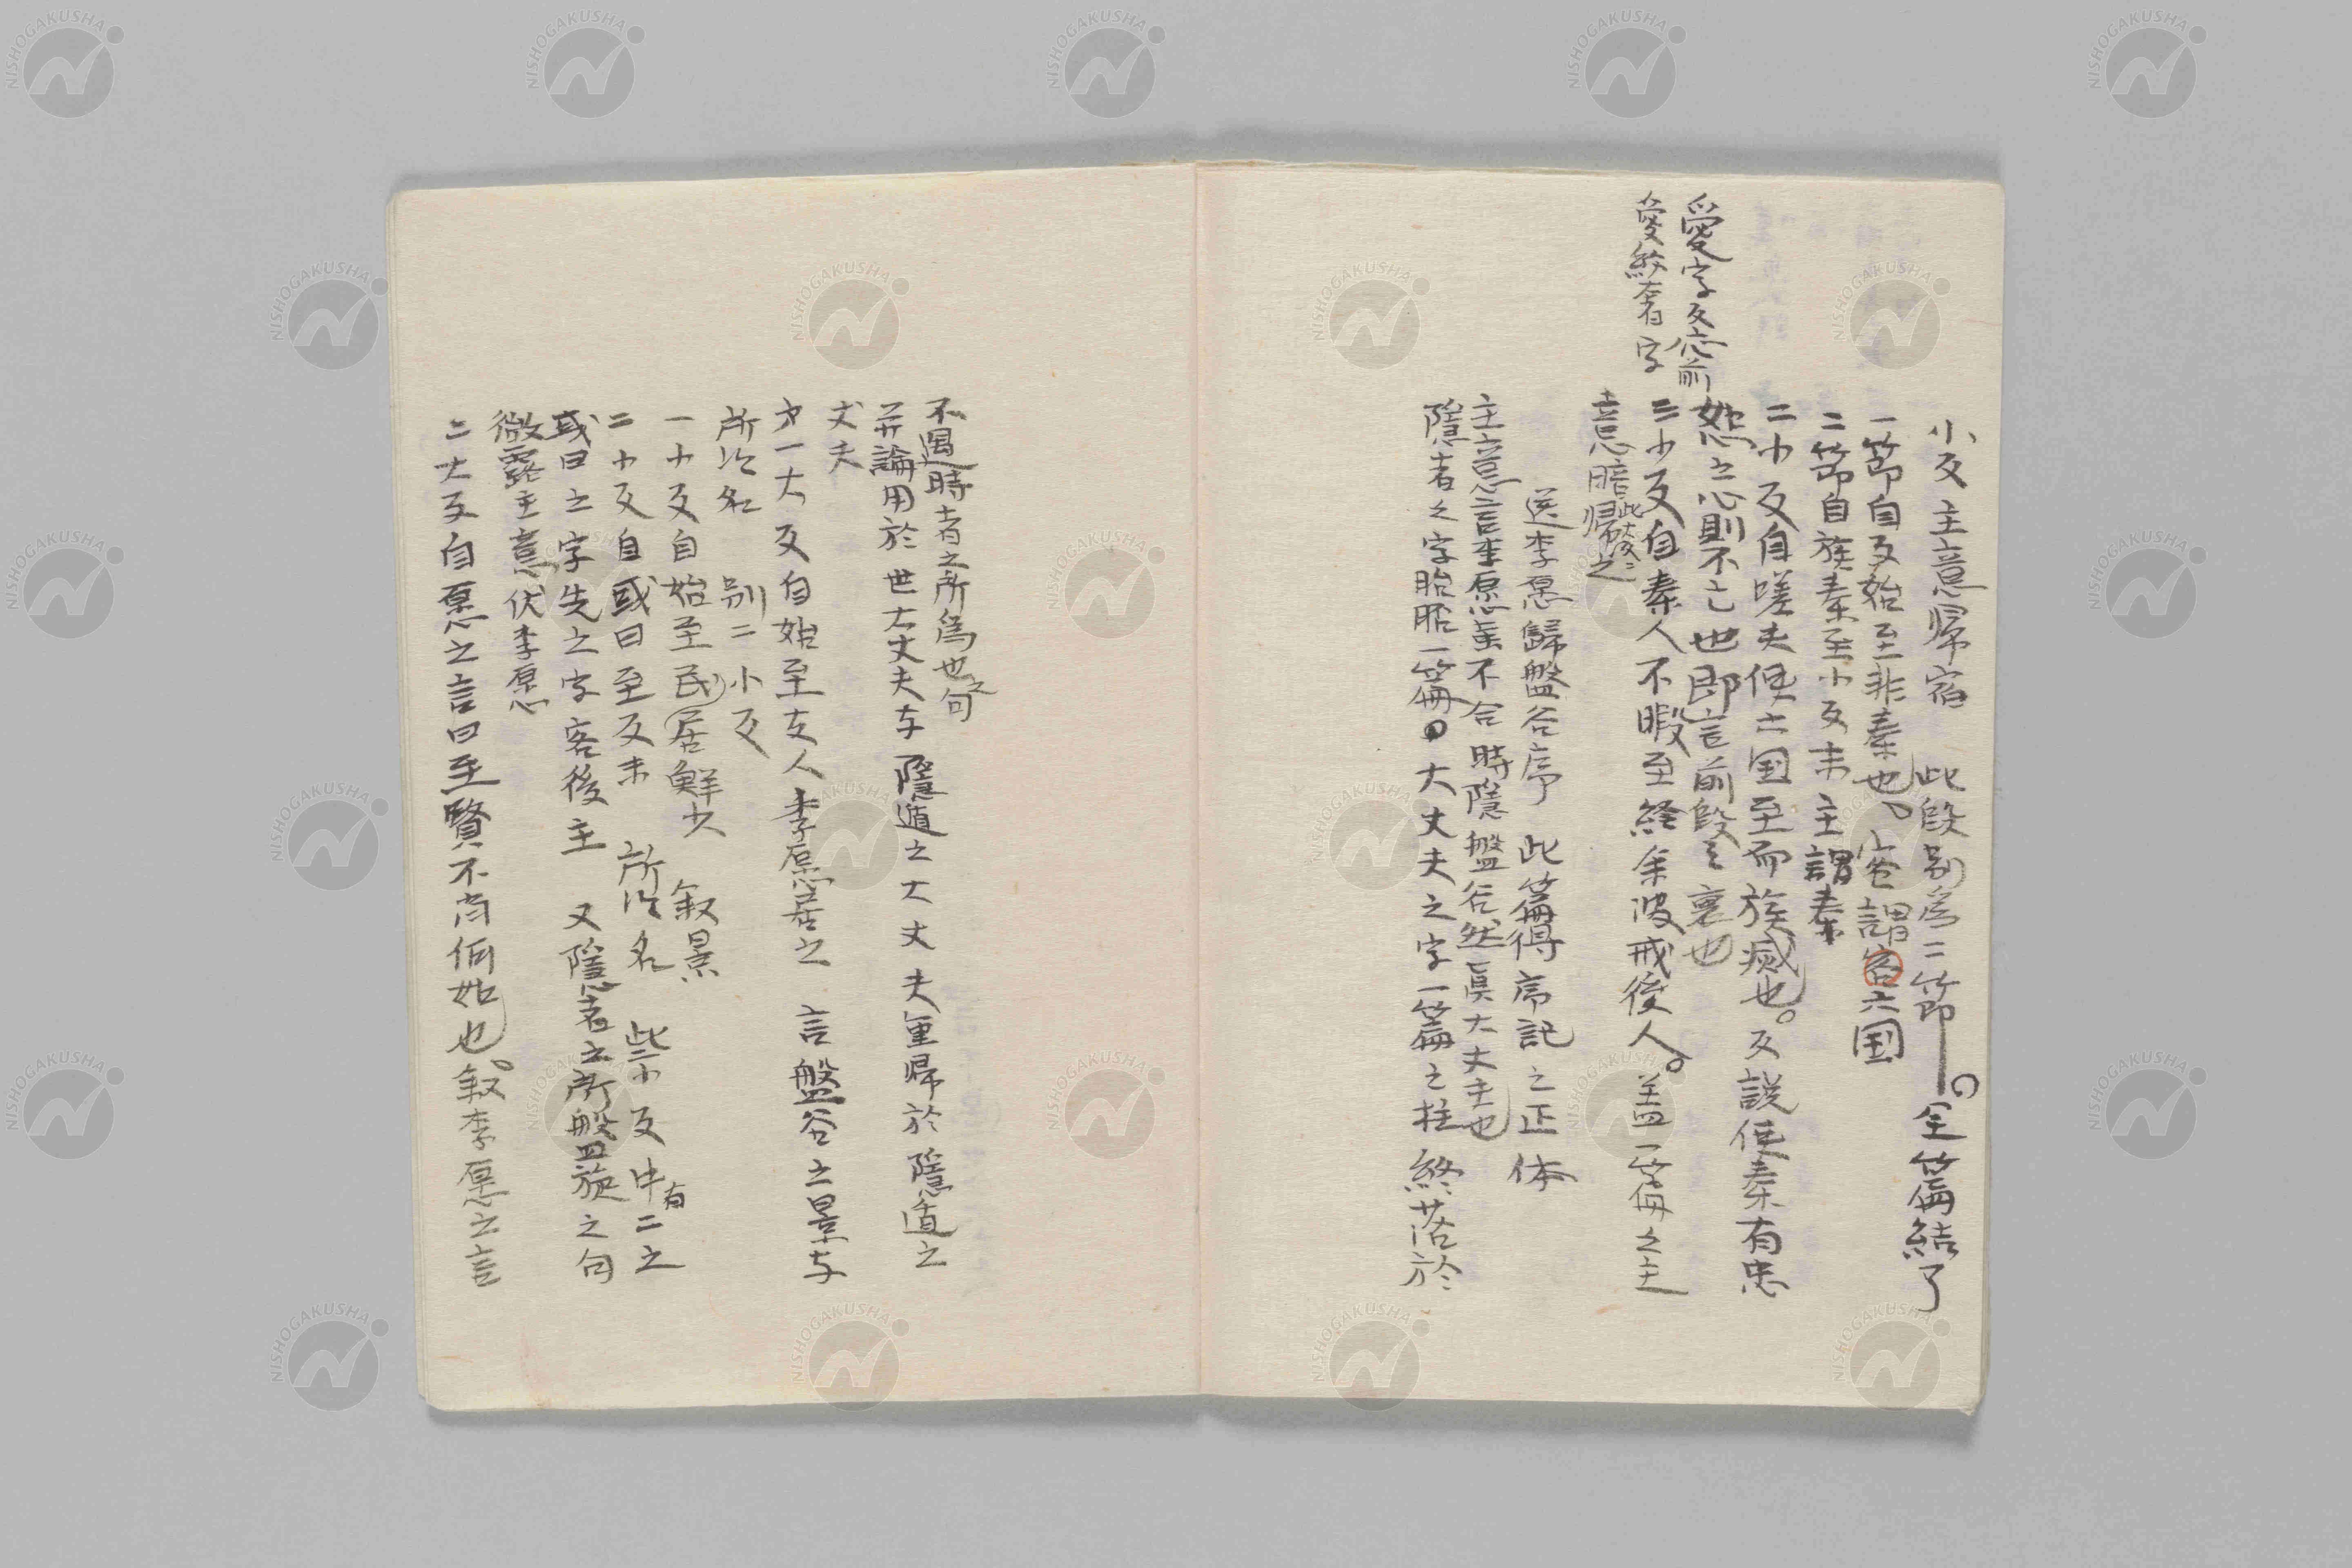 愛字反応前
愛紛奢字
小叚主意帰宿 此段別為二節。全篇結了
一節自叚始至非秦也、客謂客六国
二節自族秦至小叚末主謂秦
二小叚自嗟夫使六国至而族滅也。叚説使秦有忠
恕之心則不亡也即言前段之裏也
三小叚自秦人不暇至終余波戒後人。盖一篇之主
意暗帰此
送李愿歸盤谷序 此篇得序記之正体
主意言李愿虽不合時隱盤谷然眞大丈夫也
隱者之字胎胚一篇。大丈夫之字一篇之柱終落於
不遇時者之所為也之句
并論用於世大丈夫与隱遁之大丈夫重帰於隱遁之
丈夫
才一大叚自始至友人李愿居之 言盤谷之景与
所以名 別二小叚
一小叚自始至民居鮮少 叙景
二小叚自或曰至叚末 所以名 此小叚中有二之
或曰之字先之字客後主 又隱者之所盤旋之句
微露主意伏李愿
二大叚自愿之言曰至賢不肖何如也。叙李愿之言
NISHOGAKUSHA